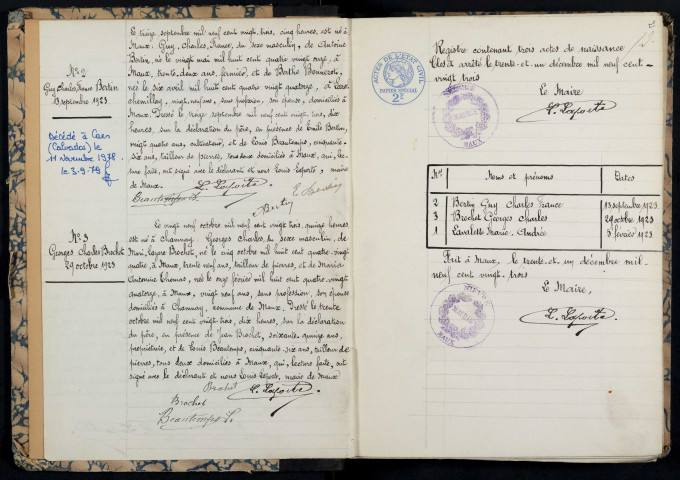 N° 2
Guy Charles France Bertin
13 septembre 1923
Décédé à Caen
(Calvados) le
11 Novembre 1978
le 3-9-79
Le treize septembre mil neuf cent vingt trois, cinq heures, est né à
Maux: Guy, Charles, France, du sexe masculin, de Antoine
Bertin, né le vingt mai mil huit cent quatre vingt onze, à
Maux, trente-deux ans, fermier, et de Berthe
né le six avril mil huit cent quatre vingt quatorze, à
vingt-neuf ans, sans profession, son épouse, domiciliés à
Maux. Dressé le treize septembre mil neuf cent vingt trois, dix
heures, sur la déclaration du père, en présence de Emile Bertin,
vingt quatre ans, cultivateur, et de Louis Beautemps, cinquante-
six ans, tailleur de pierres, tous deux domiciliés à Maux, qui, lec-
ture faite, ont signé avec le déclarant et nous Louis Laporte, maire
de Maux.
L. Laporte
Beautemps L.
E. Bertin
Bertin
N° 3
Georges Charles Brochet
29 octobre 1923
Le vingt neuf octobre mil neuf cent vingt trois, quinze heures,
est né à Channay, Georges Charles, du sexe masculin, de
Brochet, né le cinq octobre mil huit cent quatre-vingt
quatre, à Maux, trente neuf ans, tailleur de pierres, et de Maria
Antoinine Thomas, née le onze février mil huit cent quatre-vingt
quatorze, à Maux, vingt neuf ans, sans profession, son épouse
domiciliés à Channay, commune de Maux. Dressé le trente
octobre mil neuf cent vingt trois, dix heures, sur la déclaration
du père, en présence de Jean Brochet, soixante quinze ans,
propriétaire, et de Louis Beautemps, cinquante six ans, tailleur de
pierres, tous deux domiciliés à Maux, qui, lecture faite, ont
signé avec le déclarant et nous Louis Laporte, maire de Maux
Brochet
L. Laporte
Brochet
Beautemps L.
2
ACTES DE L'ETAT CIVIL
PAPIER SPECIAL
2F
Registre contenant trois actes de naissance
Clos et arrêté le trente-et-un décembre mil neuf cent-
vingt trois
Le Maire
L. Laporte
MAIRIE
MAUX
N°s Noms et prénoms Dates
2 Bertin Guy Charles France 13 septembre 1923
3 Brochet Georges Charles 29 octobre 1923
1 Lavalette Marie-Andrée 3 février 1923
Fait à Maux, le trente-et un décembre mil-
neuf cent vingt-trois
Le Maire,
L. Laporte
MAIRIE
MAUX